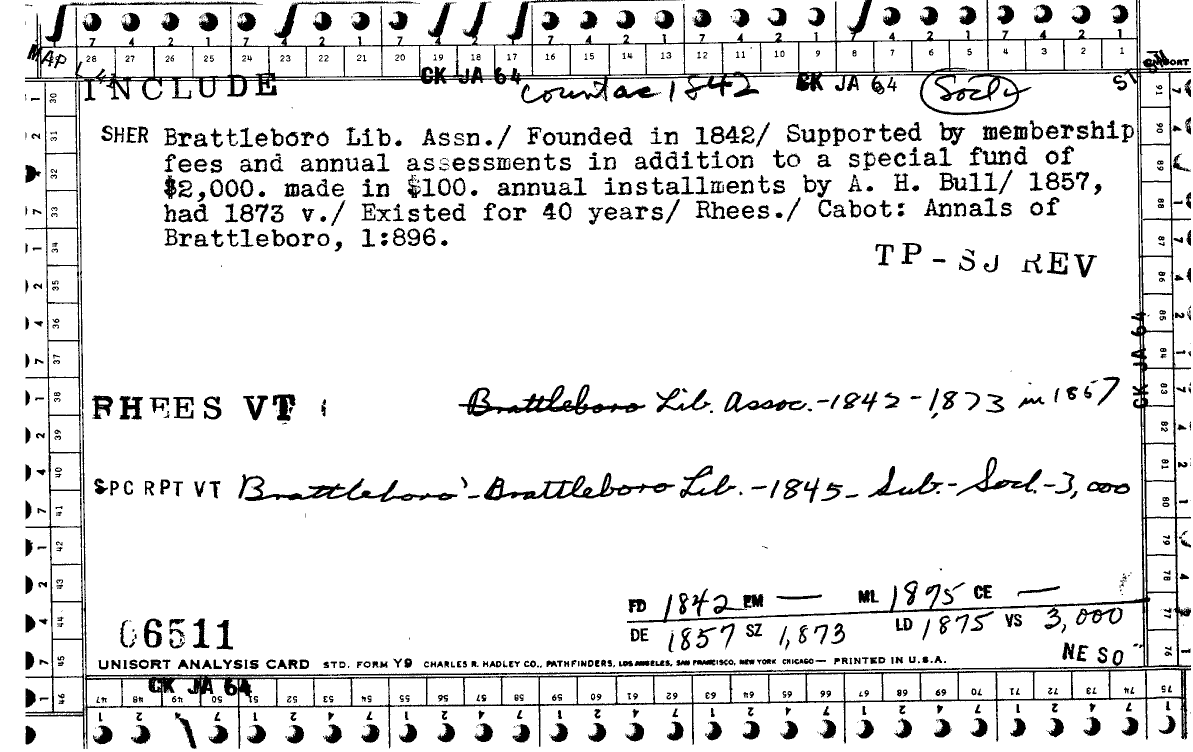 7 4 2 1 7 4 2 1 7 4 2 1 7 4 2 1 7 4 2 1 7 4 2 1 7 4 2 1
MAP 28 27 26 25 24 23 22 21 20 19 18 17 16 15 14 13 12 11 10 9 8 7 6 5 4 3 2 1
INCLUDE CK JA 64 1842 CK JA 64 Socl
SHER Brattleboro Lib. Assn./ Founded in 1842/ Supported by membership
fees and annual assessments in addition to a special fund of
$2,000. made in $100. annual installments by A. H. Bull/ 1857,
had 1873 v./ Existed for 40 years/ Rhees./ Cabot: Annals of
Brattleboro, 1:896.
TP-SJ REV
CK JA 64
RHEES VT Brattleboro Lib. Assoc.-1842-1,873 in 1857
SPC RPT VT Brattleboro-Brattleboro Lib.-1845-Sub.-Socl.-3,000
FD 1842 EM — ML 1875 CE —
DE 1857 SZ 1,873 LD 1875 VS 3,000
06511
NE SO
UNISORT ANALYSIS CARD STD. FORM Y9 CHARLES R. HADLEY CO., PATHFINDERS, LOS ANGELES, SAN FRANCISCO, NEW YORK CHICAGO— PRINTED IN U.S.A.
CK JA 64